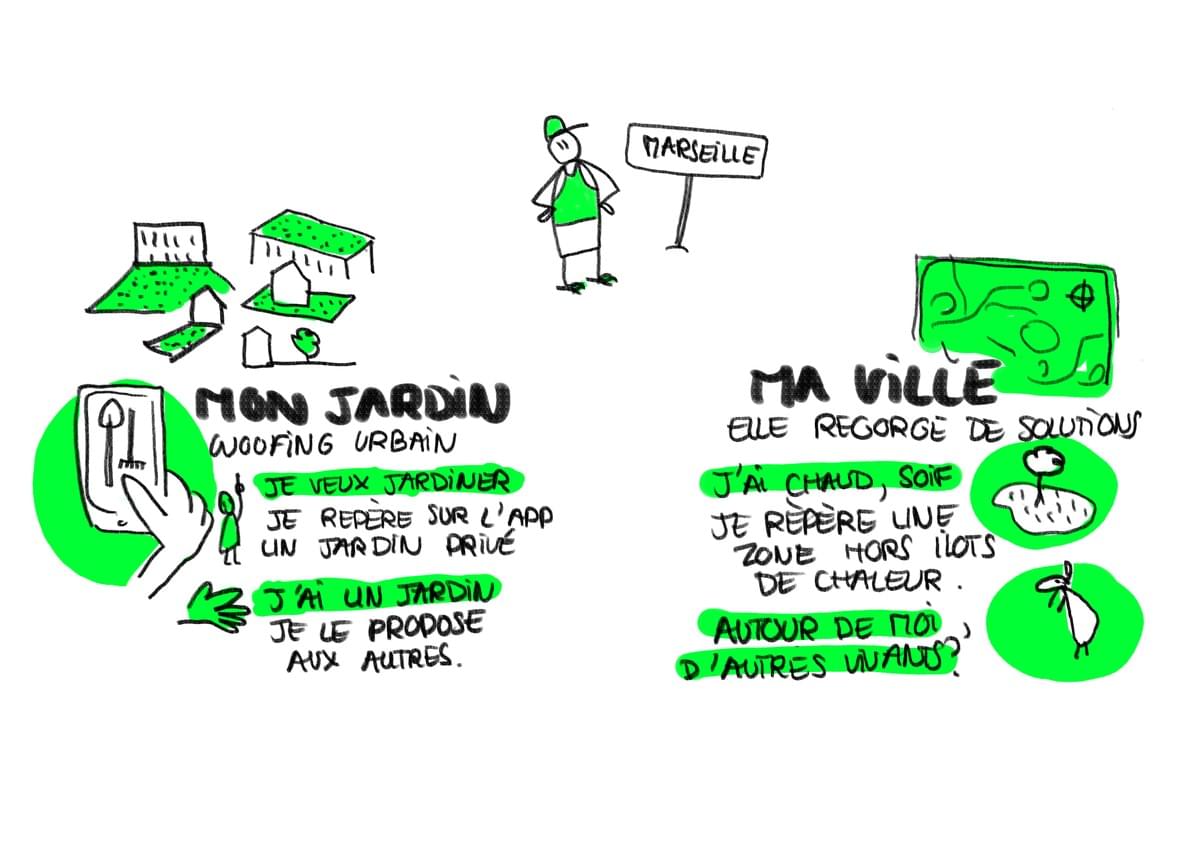 MARSEILLE
MON JARDIN
WOOFING URBAIN
JE VEUX JARDINER
JE REPÈRE SUR L'APP
UN JARDIN PRIVÉ
J'AI UN JARDIN
JE LE PROPOSE
AUX AUTRES.
MA VILLE
ELLE REGORGE DE SOLUTIONS
J'AI CHAUD, SOIF
JE RÈPÈRE UNE
ZONE HORS ILOTS
DE CHALEUR.
AUTOUR DE MOI,
D'AUTRES VIVANTS?